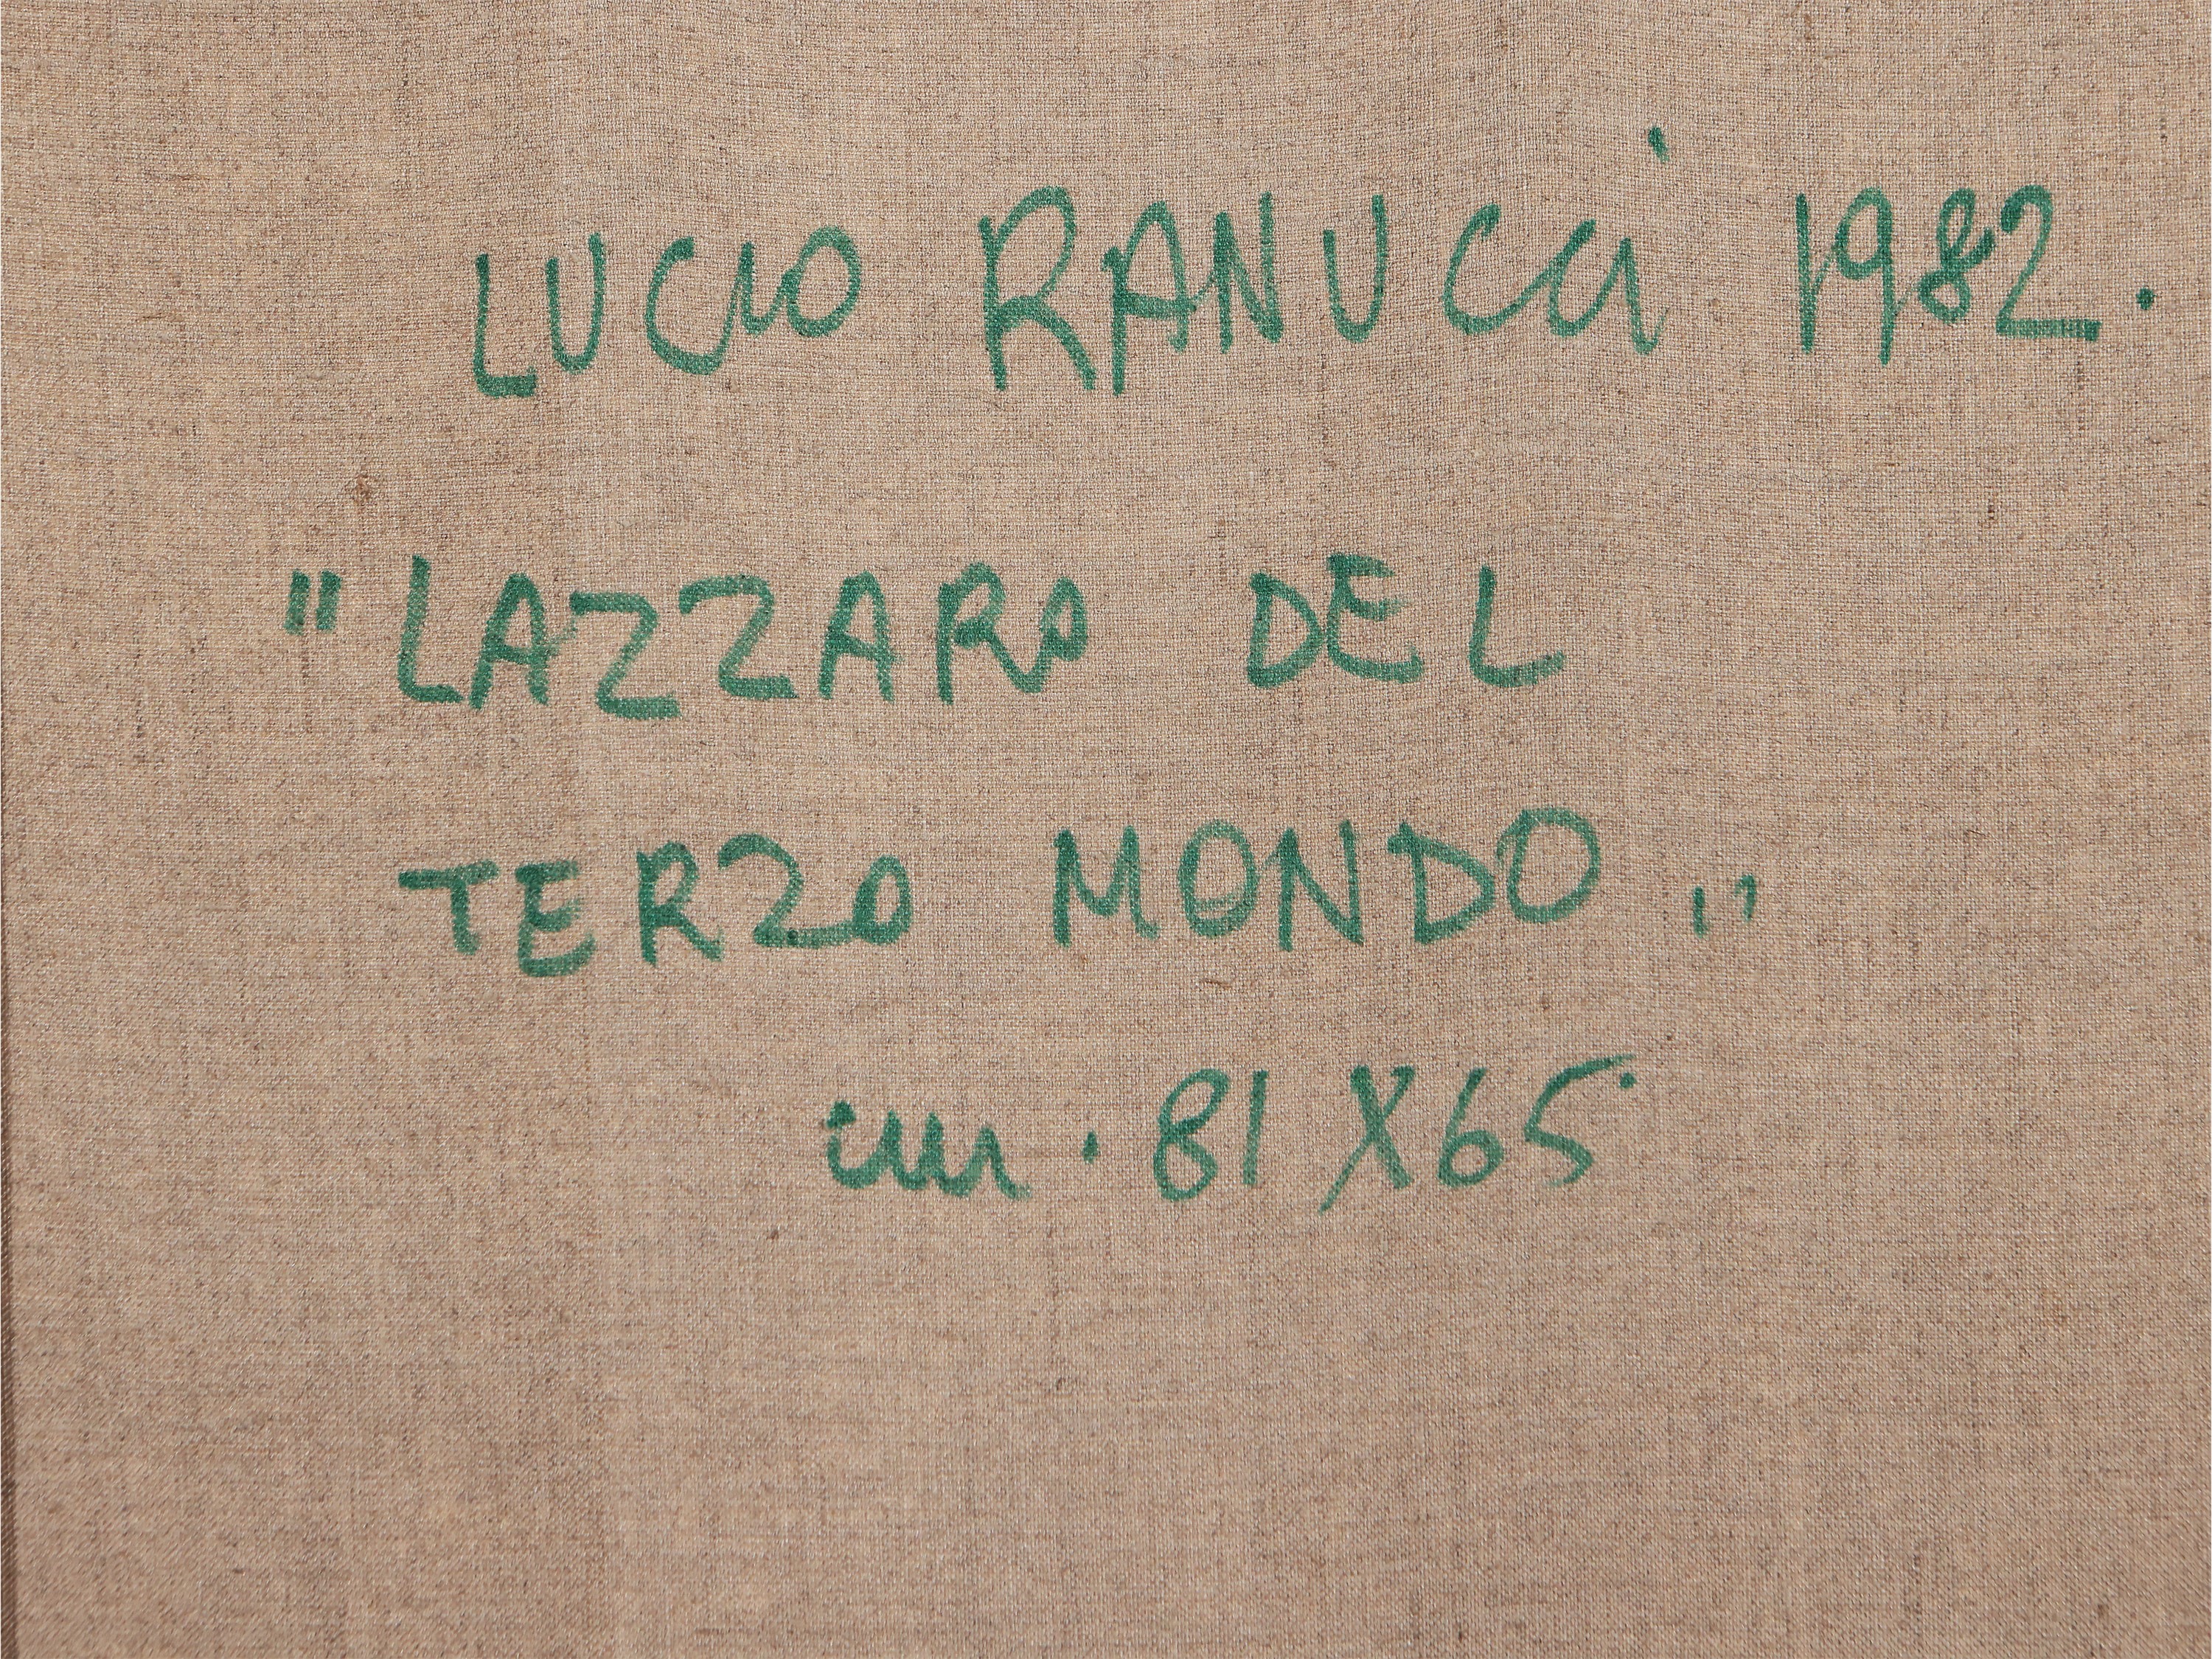 LUCIO RANUCCI 1982.
"LAZZARO DEL
TERZO MONDO"
cm. 81 X 65